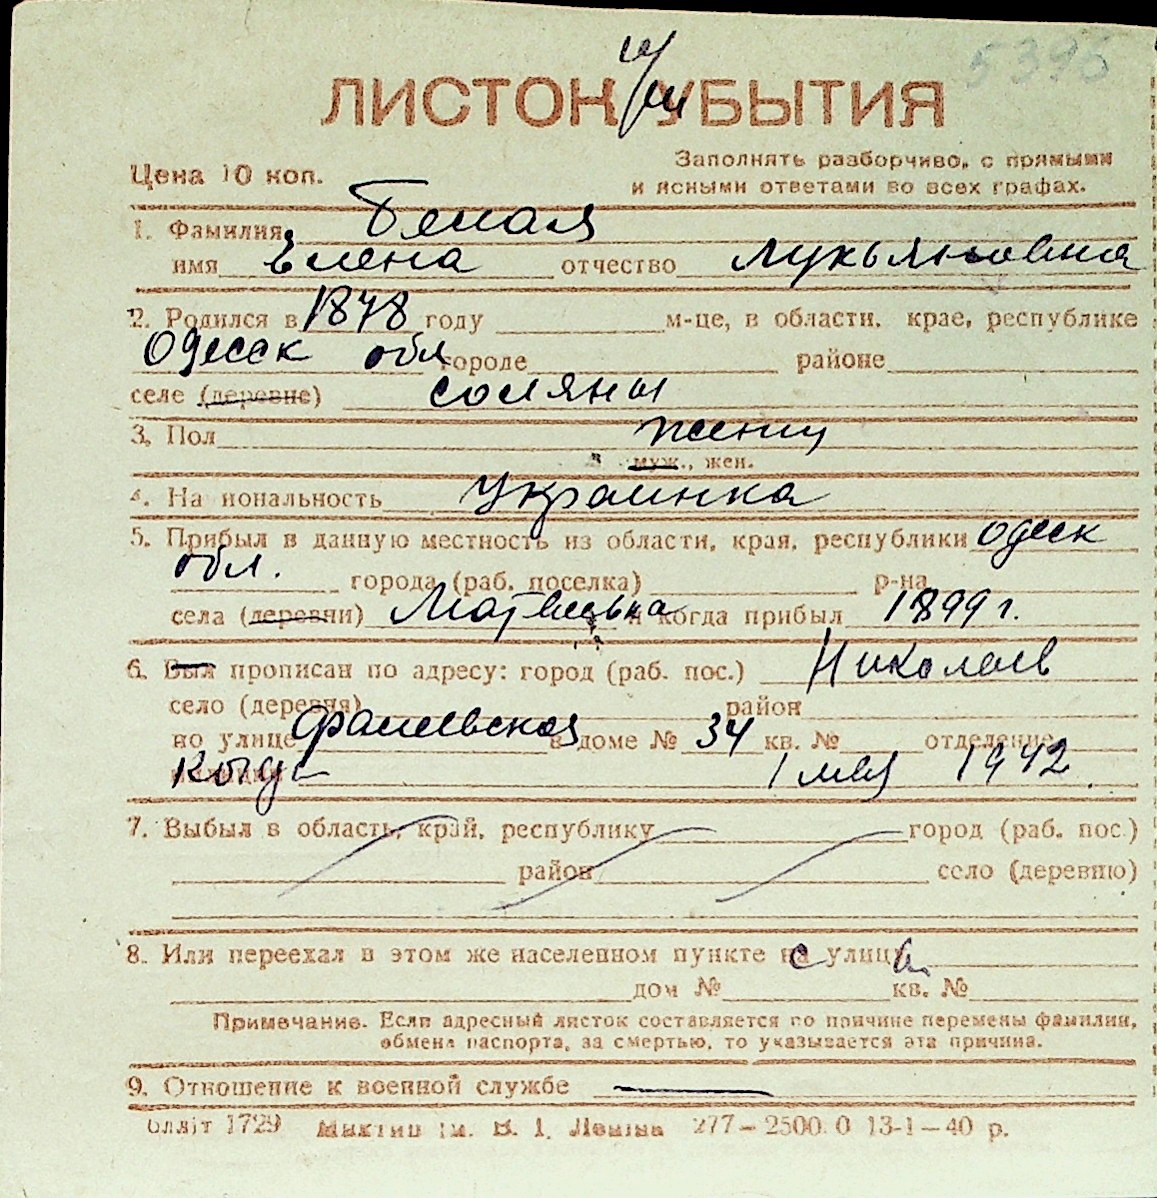 5396
ЛИСТОК УБЫТИЯ
Цена 10 коп.
Заполнять разборчиво, с прямыми
и ясными ответами во всех графах.
1. Фамилия Белая
имя Елена отчество Лукьяновна
2. Родился в 1878 году м-це, в области, крае, республике
Одесск обл городе районе
селе (деревне) Соляны
3. Пол женщ
муж., жен.
4. На иональность Украинка
5. Прибыл в данную местность из области, края, республики Одесск
обл. города (раб. поселка) р-на
села (деревни) и когда прибыл 1899 г.
6. Был прописан по адресу: город (раб. пос.) Николаев
село (деревня) район
по улице в доме № 34 кв. № отделение
милиции Когда 1 мая 1942
7. Выбыл в область, край, республику город (раб. пос.)
район село (деревню)
8. Или переехал в этом же населенном пункте на улицу
дом № кв. №
Примечание. Если адресный листок составляется по причине перемены фамилии,
обмена паспорта, за смертью, то указывается эта причина.
9. Отношение к военной службе —
блліт 1729 ім. В. І. Леніна 277–2500.0 13-1–40 р.